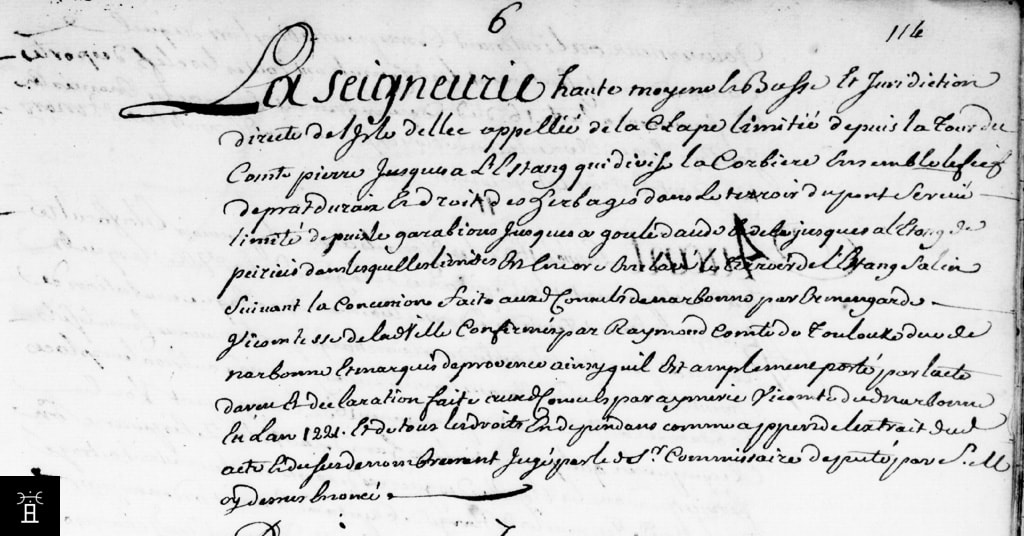 6
114
La seigneurie haute moyene & Basse Et Juridiction
directe de l'Isle dellec appellée de la Clape limitié depuis la Tour du
Comte pierre Jusques a L'Estang qui divise la Corbiere Ensemble le fief
de pratdurain Et droit des herbages dans Le terroir du pont Serme
limité depuis le garabious Jusques a goule daude & dela jusques a l'Etang de
peirieis dans lesquelles limites Est Encore le terroir de l'Etang Salin
Suivant la Concession faite auxd Consuls de narbonne par Ermengarde
Vicomtesse de lad Ville Confirmée par Raymond Comte de Toulouze duc de
narbonne Et marquis de provence ainsy quil Est amplement porté par lacte
daveu Et declaration faite auxd Consuls par aymeric Vicomte de narbonne
En Lan 1221. Et de tous les droits En dependans comme appert de lextrait dud
acte & dud denombrement Jugé par led Sr. Commissaire deputé par S. M
cy dessus Enoncé.